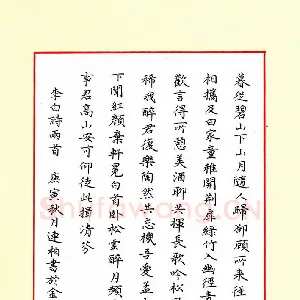 暮從碧山下山月隨人歸卻顧所來
相攜及田家童稚開荊扉綠竹入幽徑青
歡言得所憩美酒聊共揮長歌吟松
稀我醉君復樂陶然共忘機吾愛孟
下聞紅顏棄軒冕白首臥松雲醉月頻
事君高山安可仰徒此揖清芬
李白詩兩首 庚寅秋月建柏書於金